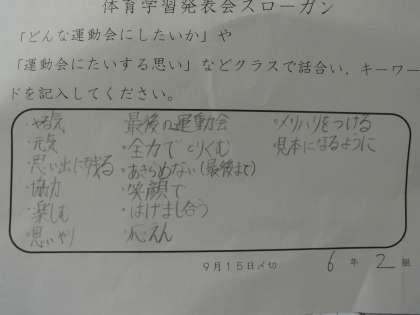 体育学習発表会スローガン
「どんな運動会にしたいか」や
「運動会にたいする思い」などクラスで話合い、キーワー
ドを記入してください。
・やる気
・元気
・思い出に残る
・協力
・楽しむ
・思いやり
・最後の運動会
・全力でとりくむ
・あきらめない(最後まで)
・笑顔で
・はげまし合う
・応えん
・メリハリをつける
・見本になるように
9月15日〆切
6年2組